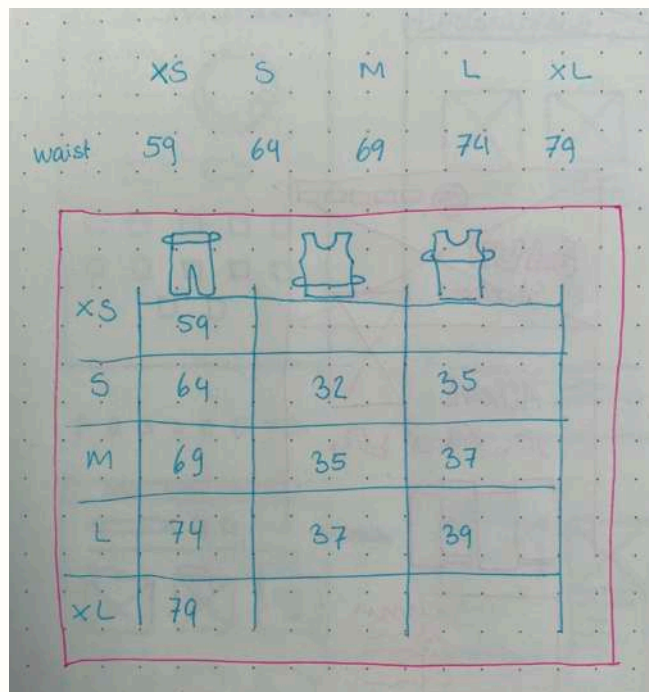 XS S M L XL
waist 59 64 69 74 79
XS 59
S 64 32 35
M 69 35 37
L 74 37 39
XL 79